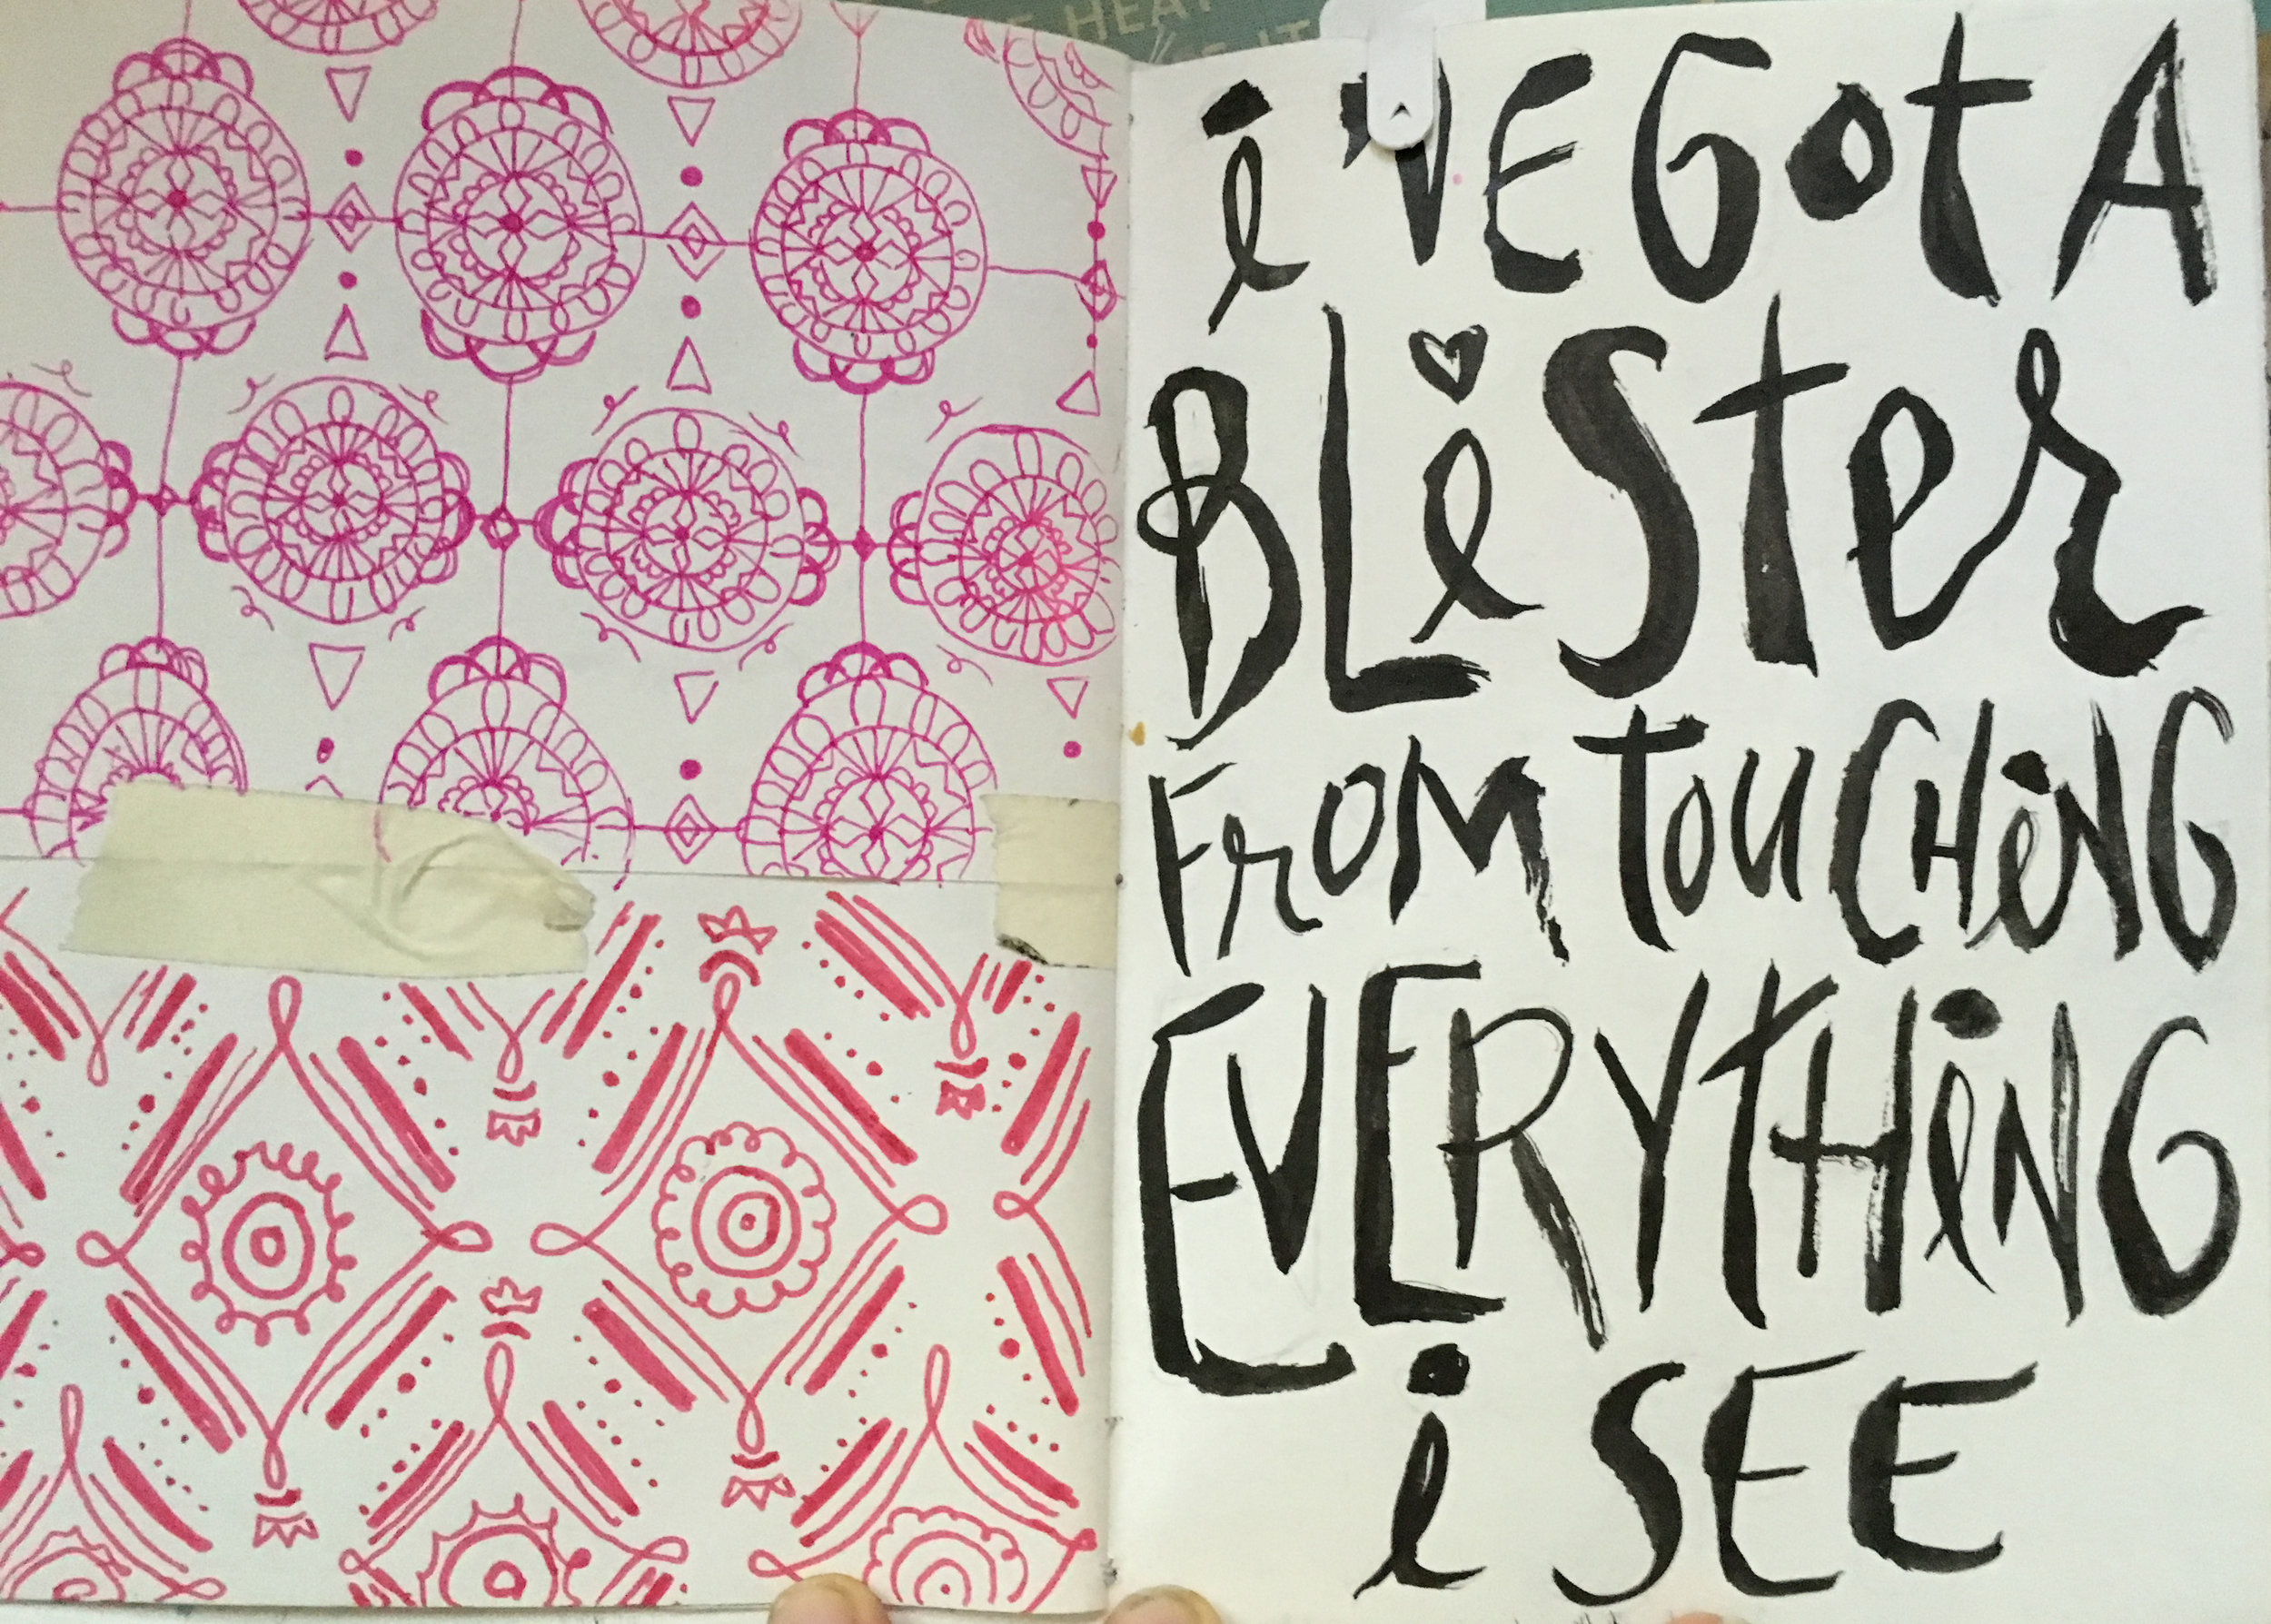 HEAT
i'VE Got A
BLiSter
FrOM toUCHiNG
EVERYtHiNG
i SEE